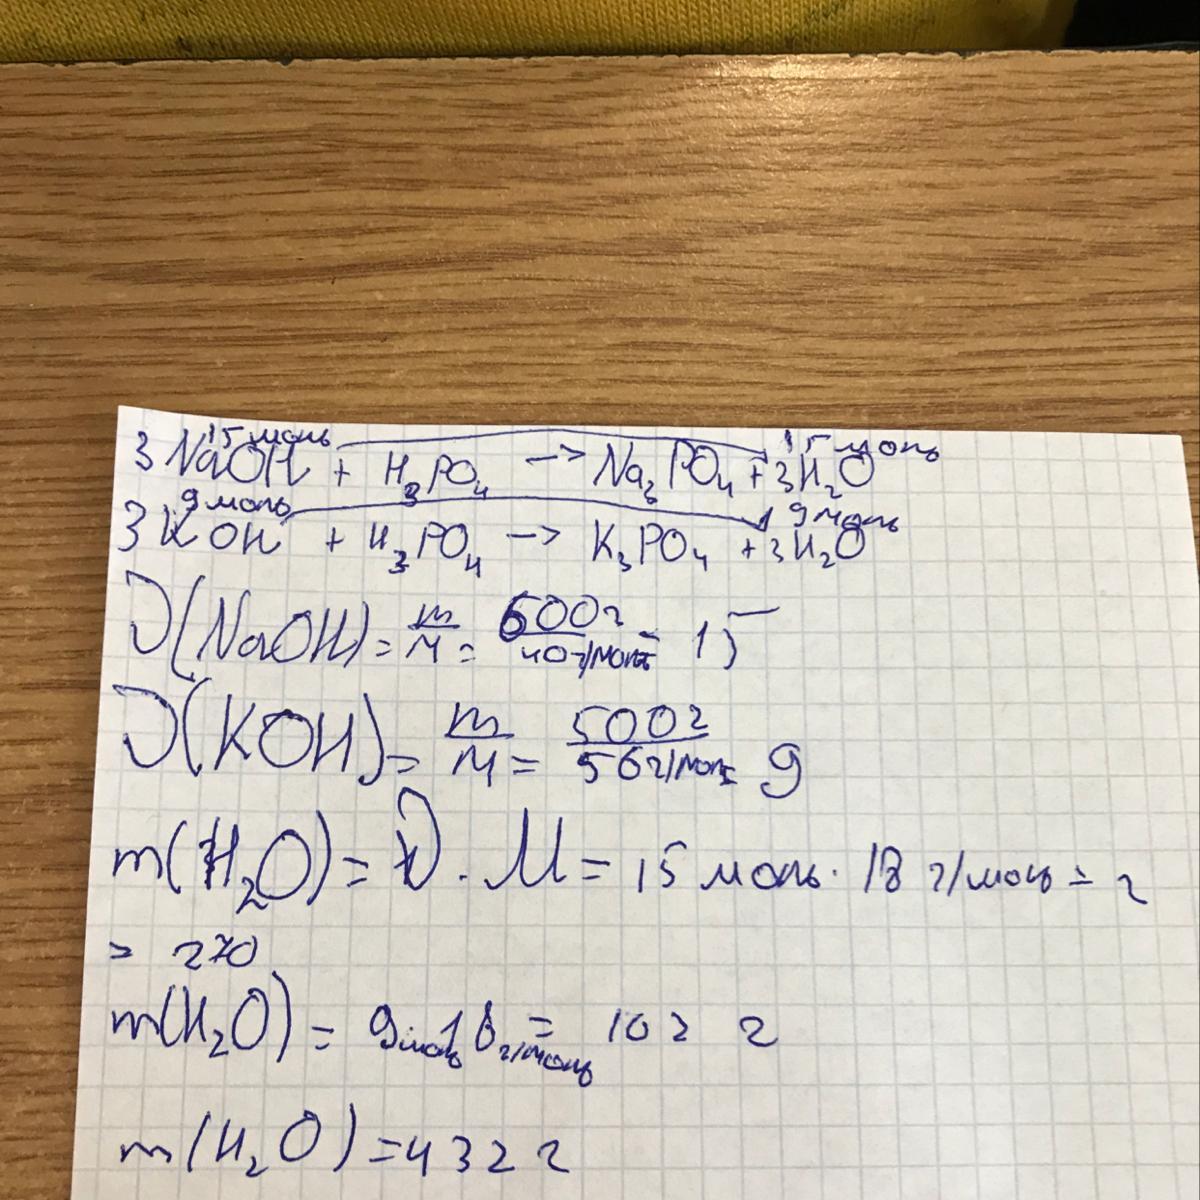 15 моль 15 моль
3NaOH + H₃PO₄ → Na₃PO₄ + 3H₂O
9 моль 9 моль
3KOH + H₃PO₄ → K₃PO₄ + 3H₂O
ν(NaOH) = m/M = 600г/40г/моль = 15
ν(KOH) = m/M = 500г/56г/моль = 9
m(H₂O) = ν · M = 15 моль · 18 г/моль = г
= 270
m(H₂O) = 9моль 18г/моль = 162 г
m(H₂O) = 432 г